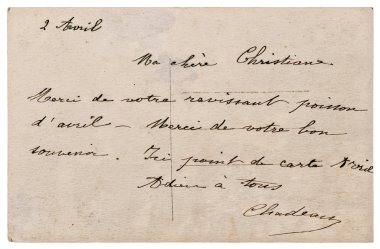 2 Avril
Ma chère Christiane
Merci de votre ravissant poisson
d'avril — Merci de votre bon
souvenir. Ici point de carte Avril
Adieu à tous